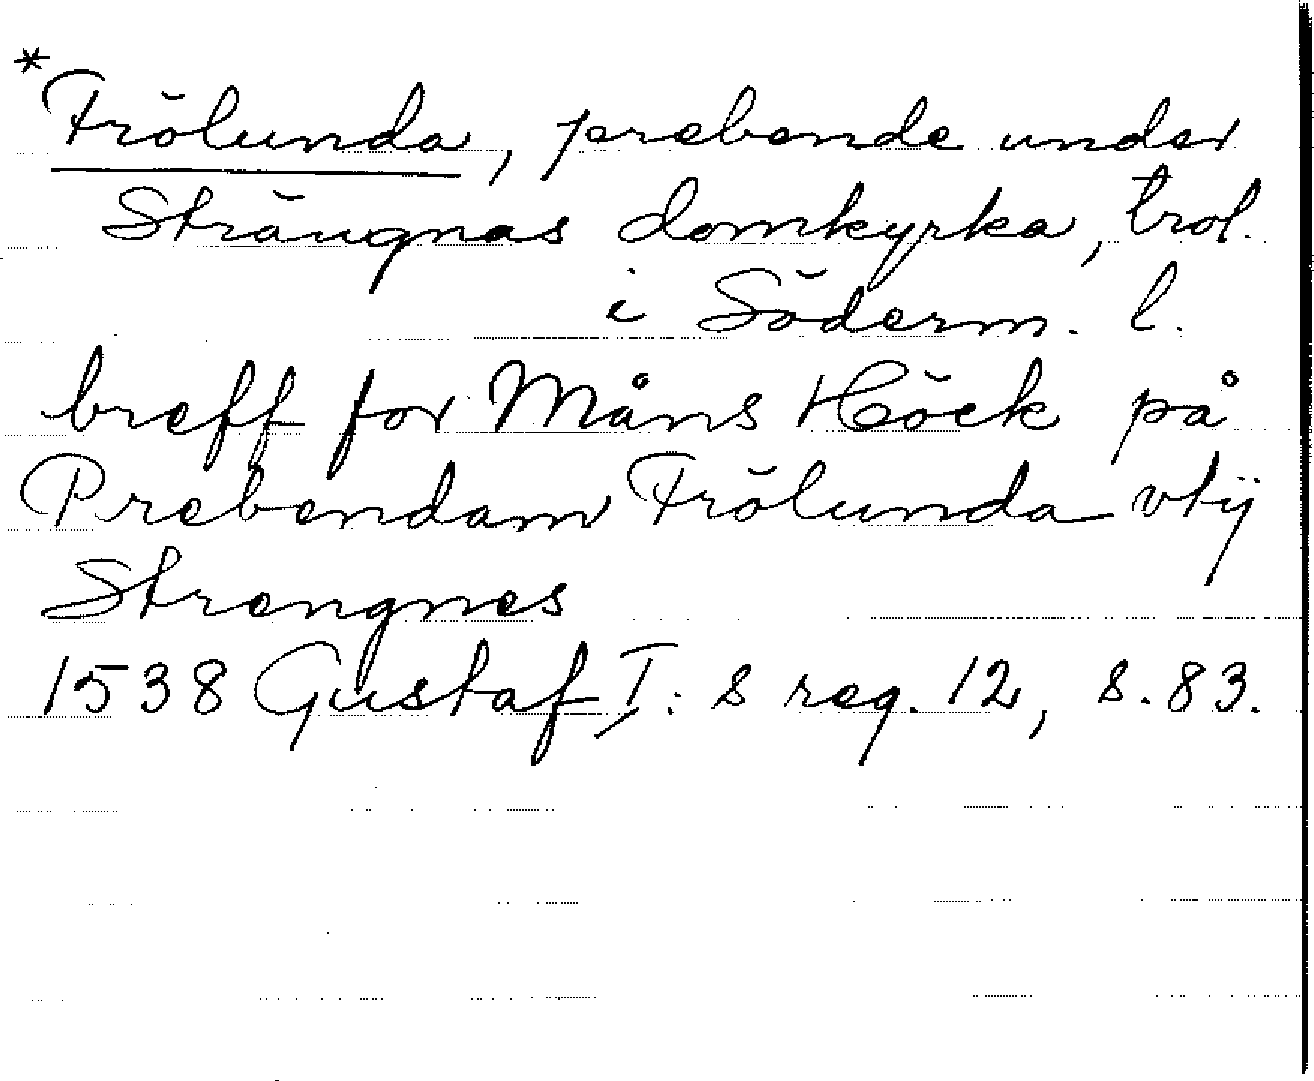 *Frölunda, prebende under
Strängnas domkyrka, trol.
i Söderm. l.
breff for Måns Höck på
Prebendam Frölunda vtij
Strengnes
1538 Gustaf I: s reg. 12, s. 83.